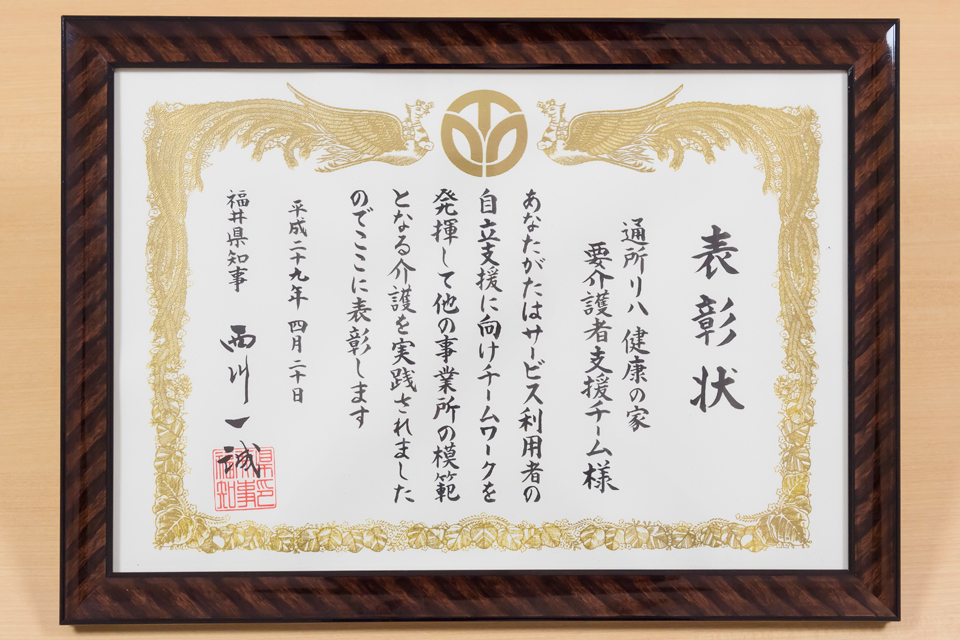 表彰状
通所リハ 健康の家
要介護者支援チーム様
あなたがたはサービス利用者の
自立支援に向けチームワークを
発揮して他の事業所の模範
となる介護を実践されました
のでここに表彰します
平成二十九年 四月二十日
福井県知事 西川一誠
福井県知事之印